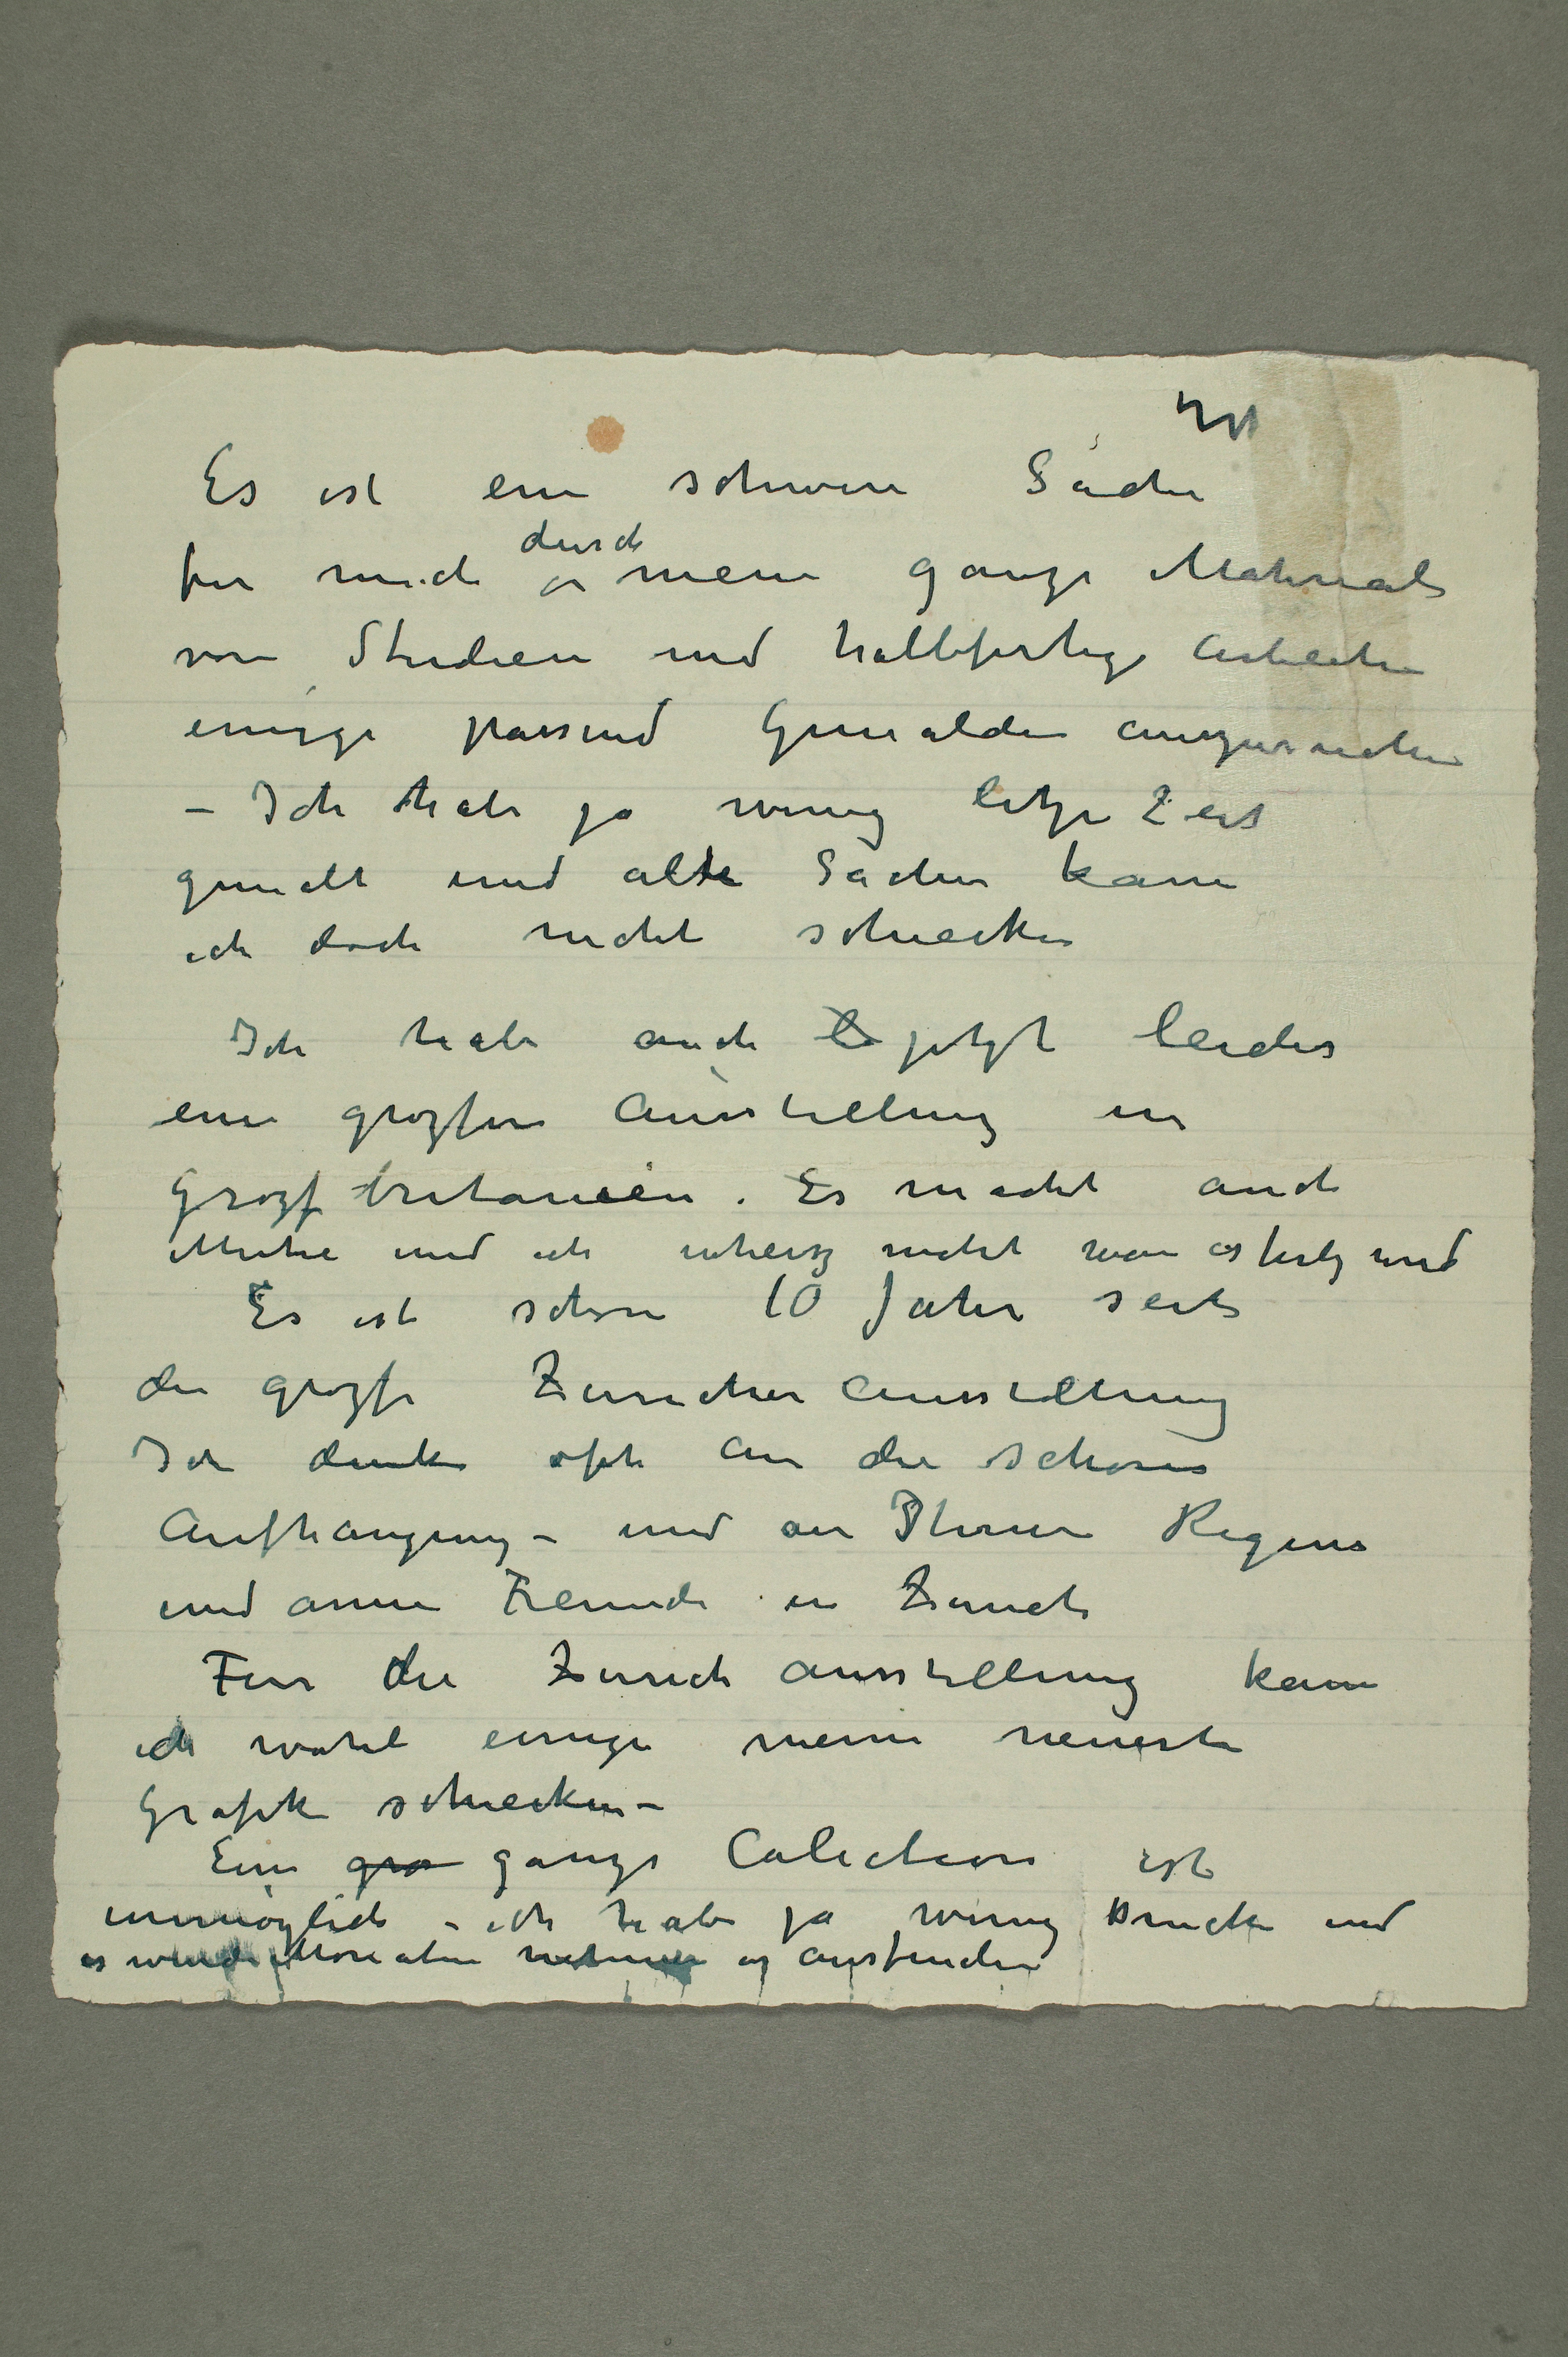 Es ist eine schwere Sache
für mich durch meine ganze Material
von Studien und halbfertige Arbeiten
einige passend Gemälden auszusuchen
– Ich habe ja wenig letze Zeit
gemalt und alte Sachen kann
ich doch nicht schiecken
Ich habe auch jetzt leider
eine grozfse Ausstellung in
Grozfbritanieen. Es macht auch
Muhe und ich wheisz nicht wan es fertig wird
Es ist schon 10 Jahre seit
die grozfe Züricher ausstellung
Ich denke oft an die schöne
Aufhangung – und an Ihnen Regime
und annere Freunde in Zürich
Für die Zürich ausstellung kann
ich wohl einige meine neueste
Grafik schiecken –
Eine gro ganze Colection ist
unmöglich – ich habe ja wenig Drucke und
es würde Monaten nehmen es ausfinden